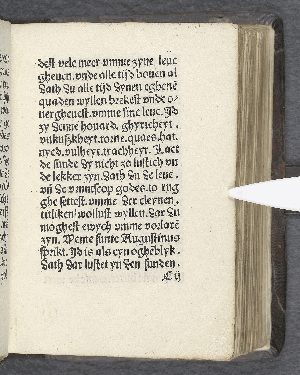 dest vele meer vmme zyne leue
gheuen. vnde alle tijd bouen al
Dath du alle tijd dynen eghenē
quaden wyllen brekest vnde o-
uergheuest. vmme sine leue. Id
zy dāne houard. ghyricheyt.
vnkuszkheyt. torne. quaed. hat.
nyed. vulheyt. trachheyt. Laet
de sunde dy nicht zo lustich vn
de lekker zyn. Dath du de leue.
vn̄ de vmmefcop godes. to ring
ghe settest. vmme der cleynen.
titliken wollust wyllen. dar du
moghest ewych vmme vorlorē
zyn. Wente sunte Augustinus
sprikt. Id is als eyn oghēblyk.
Dath dar lustet yn den sunden.
C ij